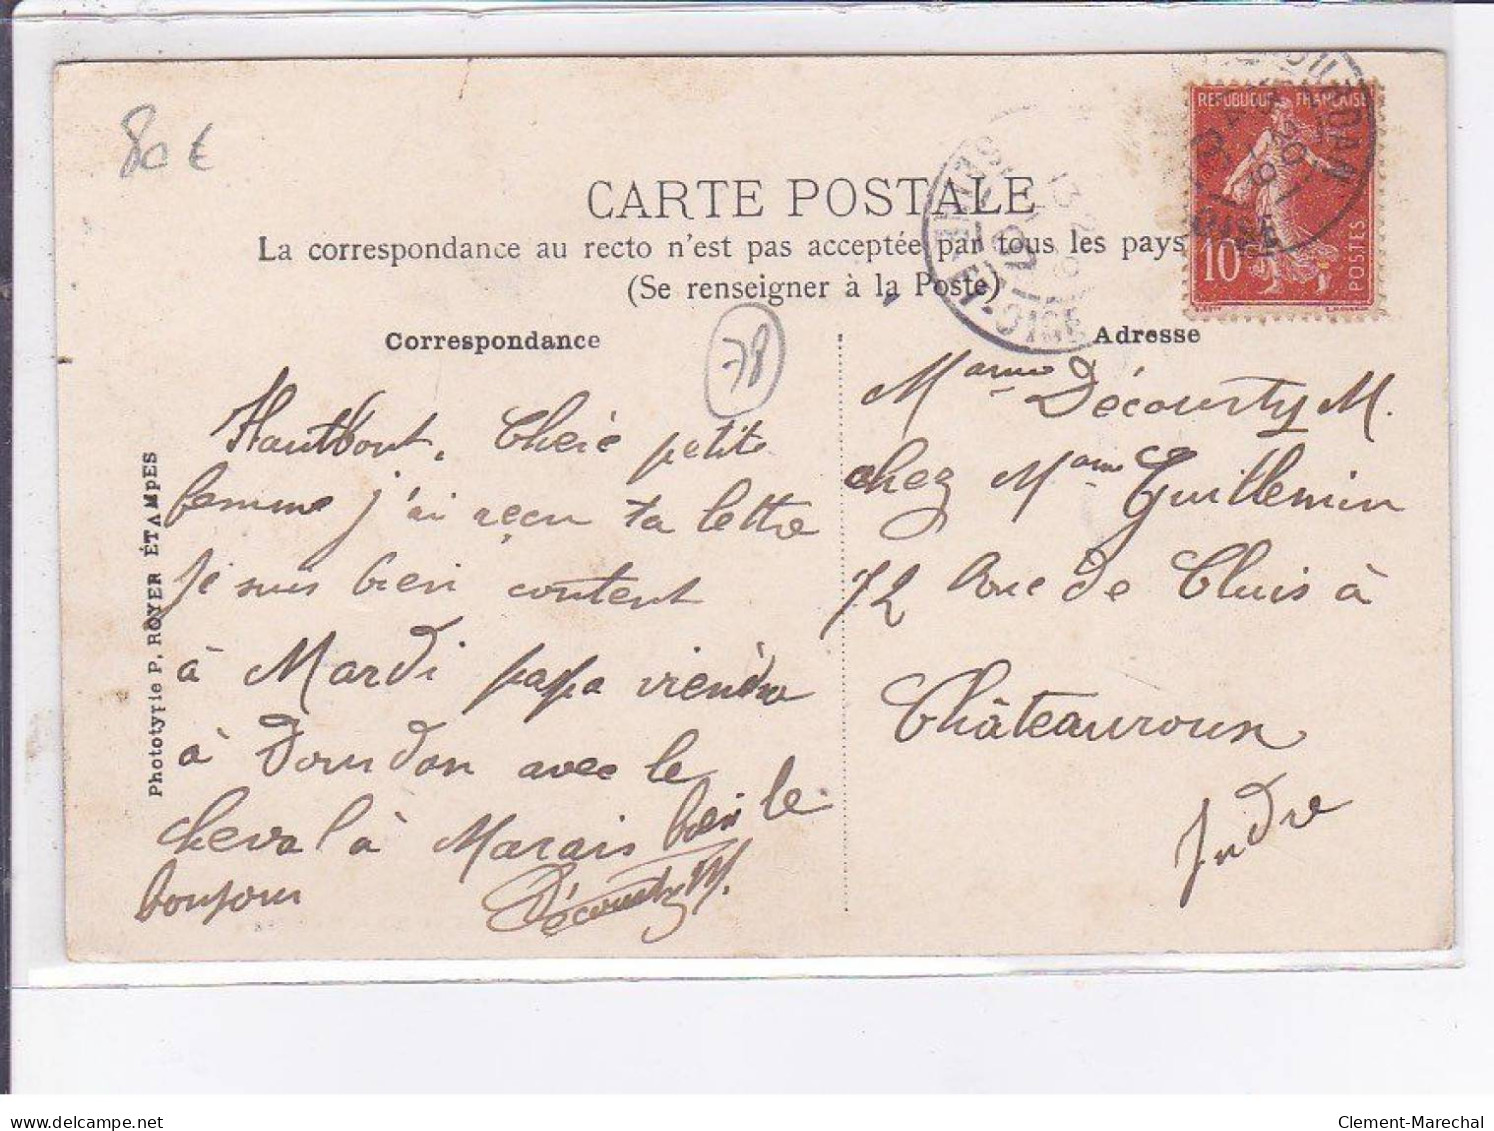 80 €
CARTE POSTALE
La correspondance au recto n'est pas acceptée par tous les pays
(Se renseigner à la Poste)
Correspondance
78
Hautbout, Chère petite
femme j'ai reçu ta lettre
je suis bien content
à Mardi papa viendra
à Dourdan avec le
cheval à Marais bien le
bonjour
Décourty M.
Phototypie P. ROYER ÉTAMPES
Adresse
Mame Décourty M.
chez Mame Guillemin
72 Rue de Cluis à
Châteauroux
Indre
REPUBLIQUE FRANÇAISE
10
POSTES
DOURDAN
S.-ET-OISE
delcampe.net
Clement-Marechal